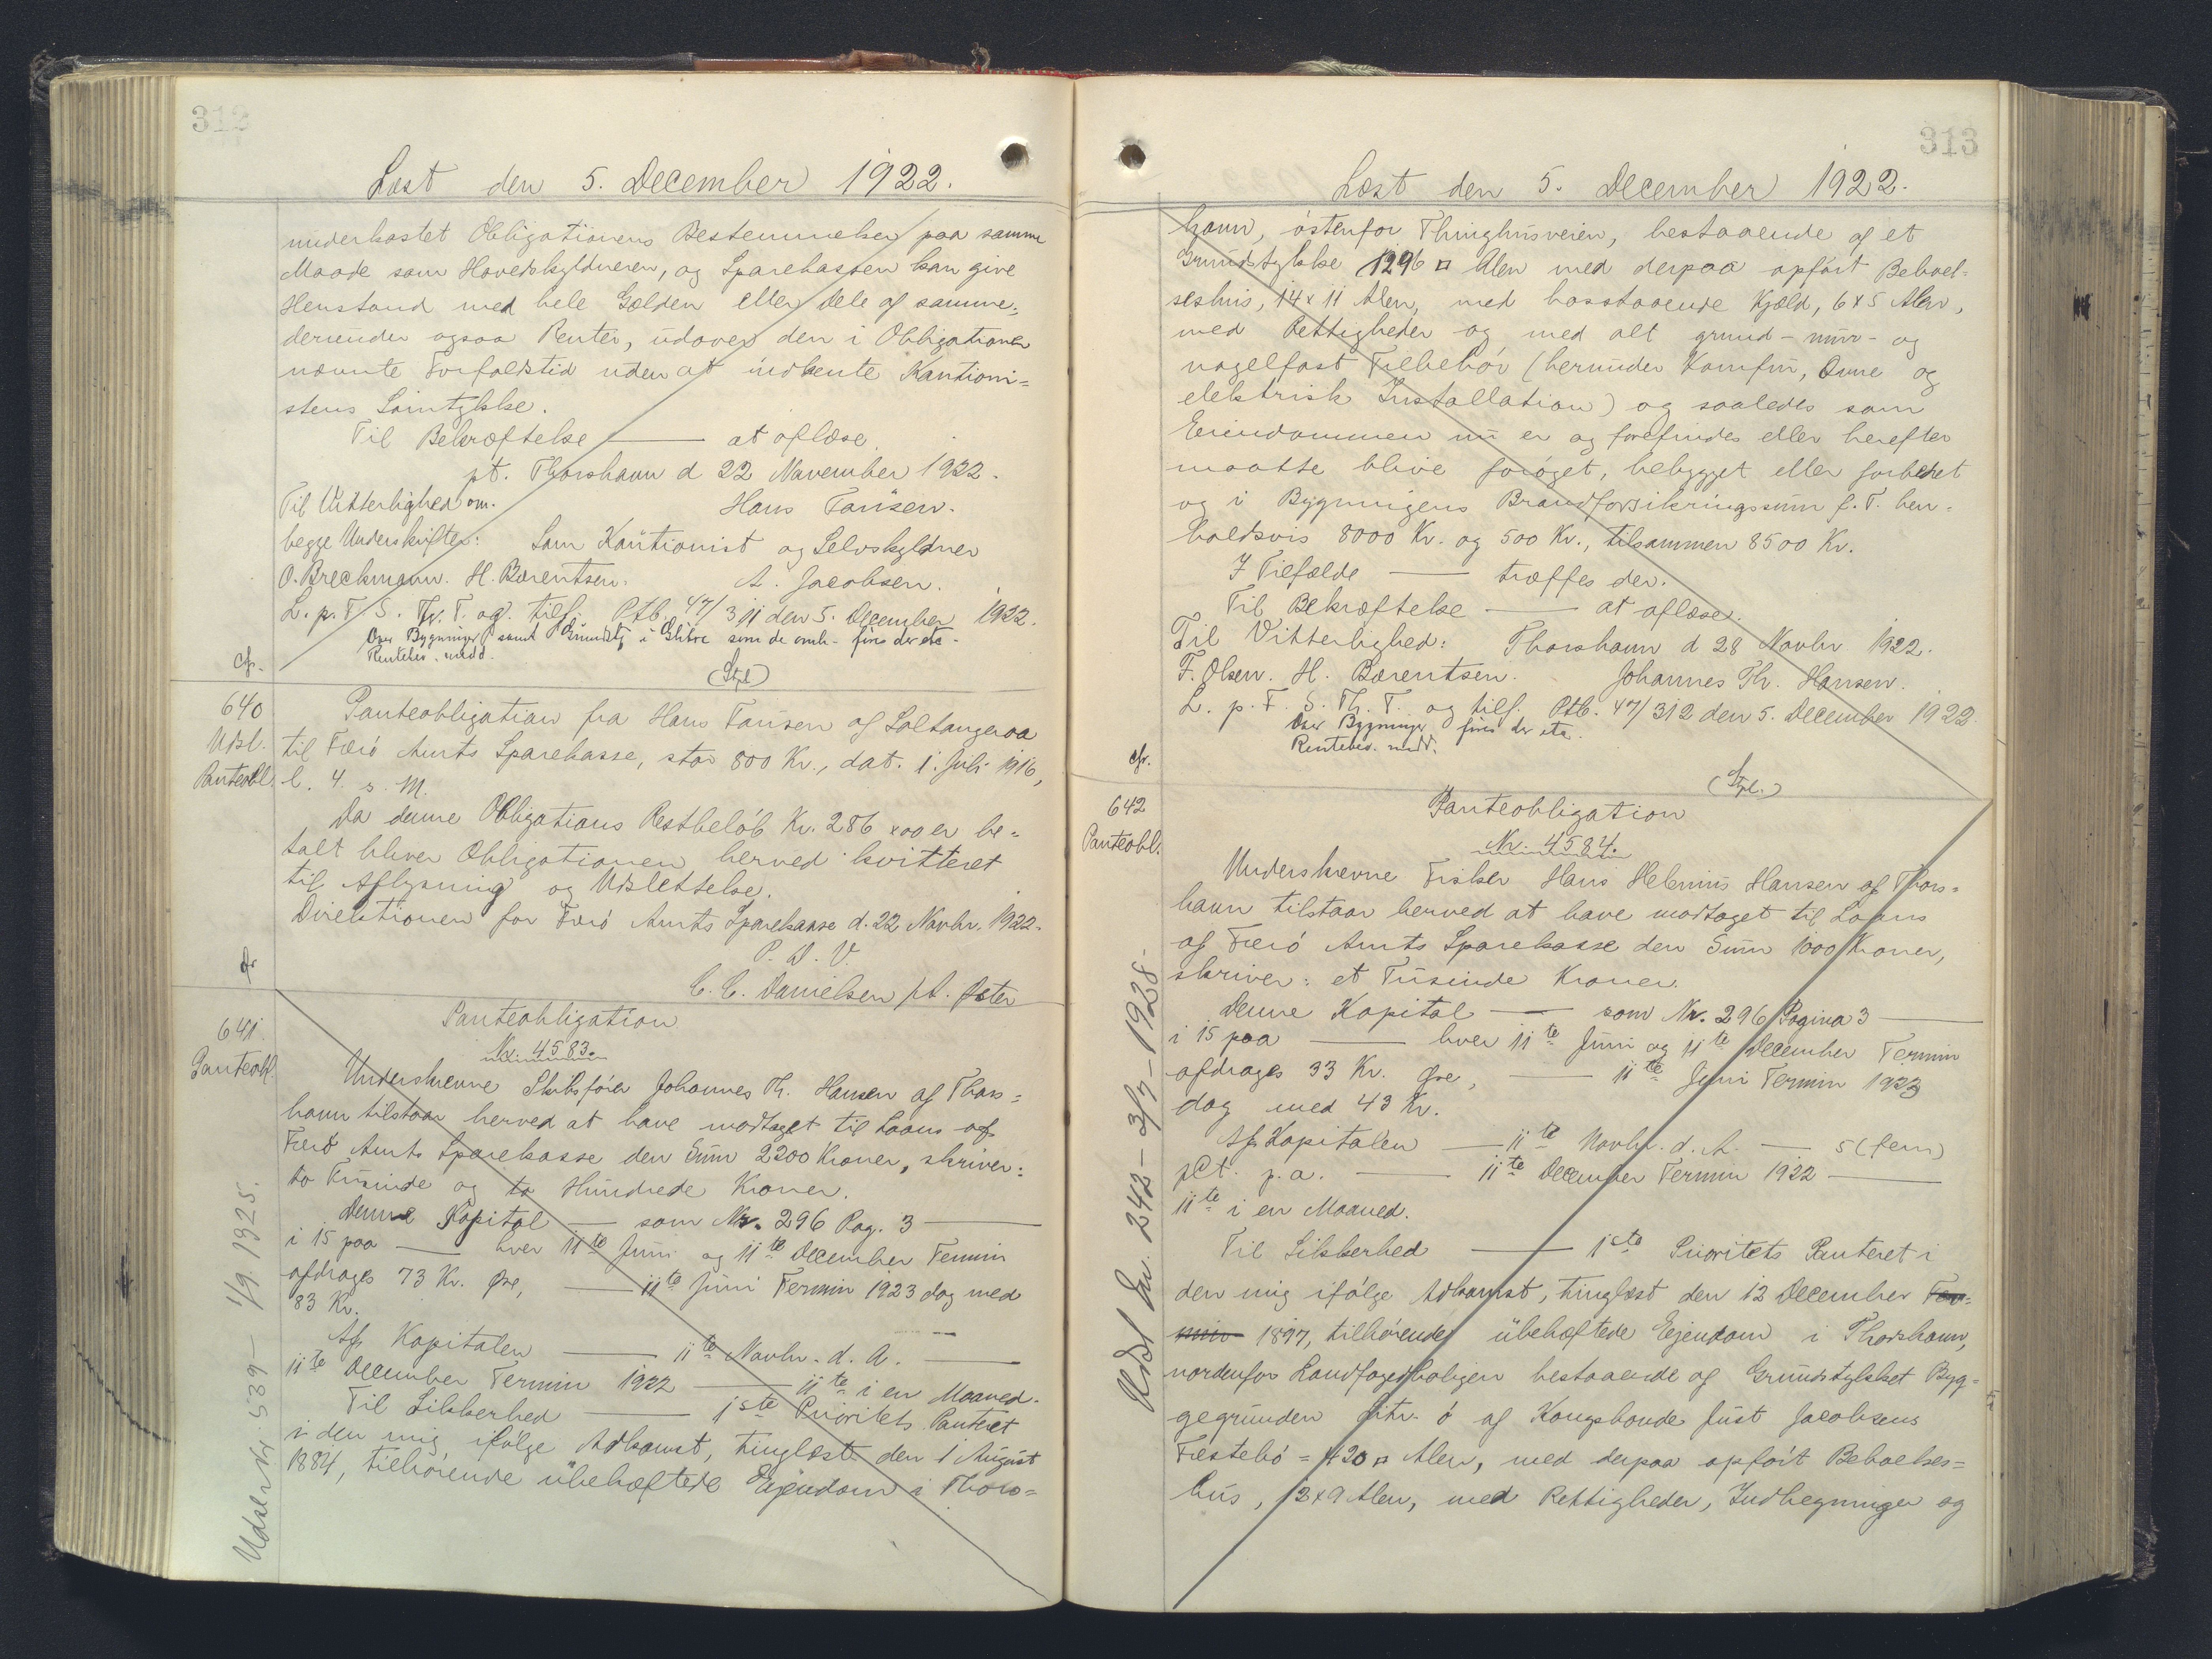 312
Læst den 5. December 1922.
underkastet Obligationens Bestemmelser paa samme
Maade som Hovedskyldneren, og Sparekassen kan give
Henstand med hele Gælden eller dele af samme,
derunder ogsaa Renter, udover den i Obligationen
nævnte Forfaldstid uden at indhente Kautioni=
stens Samtykke.
Til Bekræftelse — at aflæse.
pt. Thorshavn d 22 November 1922.
Til Vitterlighed om. Hans Tausen.
begge Underskrifter: Som Kautionist og Selvskyldner
O. Breckmann. H. Bærentsen. A. Jacobsen.
L. p. F. S. Th. T. og tilf. Ptb. 47/311 den 5. December 1922.
Over Bygninger samt Grundst. i som de omh. fins der eta.
Rentebev. medd.
cfr.
(Stpl)
640
Udsl.
Panteobl.
Panteobligation fra Hans Tausen af Saltangeraa
til Færö Amts Sparekasse, stor 800 Kr., dat. 1. Juli 1916,
l. 4. s. M.
Da denne Obligations Restbelöb Kr. 286 x 00 er be=
talt bliver Obligationen herved kvitteret
til Aflysning og Udslettelse.
Direktionen for Færö Amts Sparekasse d. 22 Novbr. 1922.
P. D. V.
C. C. Danielsen
cfr
641.
Panteobl.
Panteobligation
Nr. 4583.
Underskrevne Skibsförer Johannes Th. Hansen af Thors=
havn tilstaar herved at have modtaget til Laans af
Færö Amts Sparekasse den Sum 2200 Kroner, skriver:
to Tusinde og to Hundrede Kroner.
Denne Kapital — som Nr. 296 Pag. 3 —
i 15 paa — hver 11te Juni og 11te December Termin
afdrages 73 Kr. Øre, — 11te Juni Termin 1923 dog med
83 Kr.
Af Kapitalen — 11te Novbr. d. A. —
11te December Termin 1922 — 11te i en Maaned.
Til Sikkerhed — 1ste Prioritets Panteret
i den mig ifölge Adkomst, tinglæst den 1 August
1884, tilhörende übehæftede Ejendom i Thors=
Udsl. Nr. 539 — 1/9. 1925.
313
Læst den 5. December 1922.
havn, östenfor Thinghusveien, bestaaende af et
Grundstykke 1296 □ Alen med derpaa opfört Beboel=
seshus, 14 x 11 Alen, med hosstaaende Kjæld, 6 x 5 Alen,
med Rettigheder og med alt grund- mur- og
nagelfast Tilbehör (herunder Komfur, Ovne og
elektrisk Installation) og saaledes som
Eiendommen nu er og forefindes eller herefter
maatte blive foröget, bebygget eller forbedret
og i Bygningens Brandforsikringssum f. T. hen=
holdsvis 8000 Kr. og 500 Kr., tilsammen 8500 Kr.
I Tilfælde — træffes der.
Til Bekræftelse — at aflæse.
Til Vitterlighed: Thorshavn d 28 Novbr 1922.
F. Olsen. H. Bærentsen. Johannes Th. Hansen.
L. p. F. S. Th. T. og tilf. Ptb. 47/312 den 5. December 1922.
Over Bygninger fins der eta.
Rentebev. medd.
cfr.
(Stpl.)
642
Panteobl.
Panteobligation
Nr. 4584.
Underskrevne Fisker Hans Helenius Hansen af Thors=
havn tilstaar herved at have modtaget til Laans
af Færö Amts Sparekasse den Sum 1000 Kroner,
skriver: et Tusinde Kroner.
Denne Kapital — som Nr. 296 Pagina 3 —
i 15 paa — hver 11te Juni og 11te December Termin
afdrages 33 Kr. Øre, — 11te Juni Termin 1923
dog med 43 Kr.
Af Kapitalen — 11te Novbr. d. A. — 5 (fem)
pCt. p.a. — 11te December Termin 1922 —
11te i en Maaned.
Til Sikkerhed — 1ste Prioritets Panteret i
den mig ifölge Adkomst, tinglæst den 12 December Ter=
min 1897, tilhörende übehæftede Ejendom i Thorshavn,
nordenfor Landfogedboligen bestaaende af Grundstykket Byg=
gegrunden Litr. ö af Kongsbonde Just Jacobsens
Festebö = 420 □ Alen, med derpaa opfört Beboelses=
hus, 12 x 9 Alen, med Rettigheder, Indhegninger og
Udsl Nr. 242 — 3/7 — 1928.